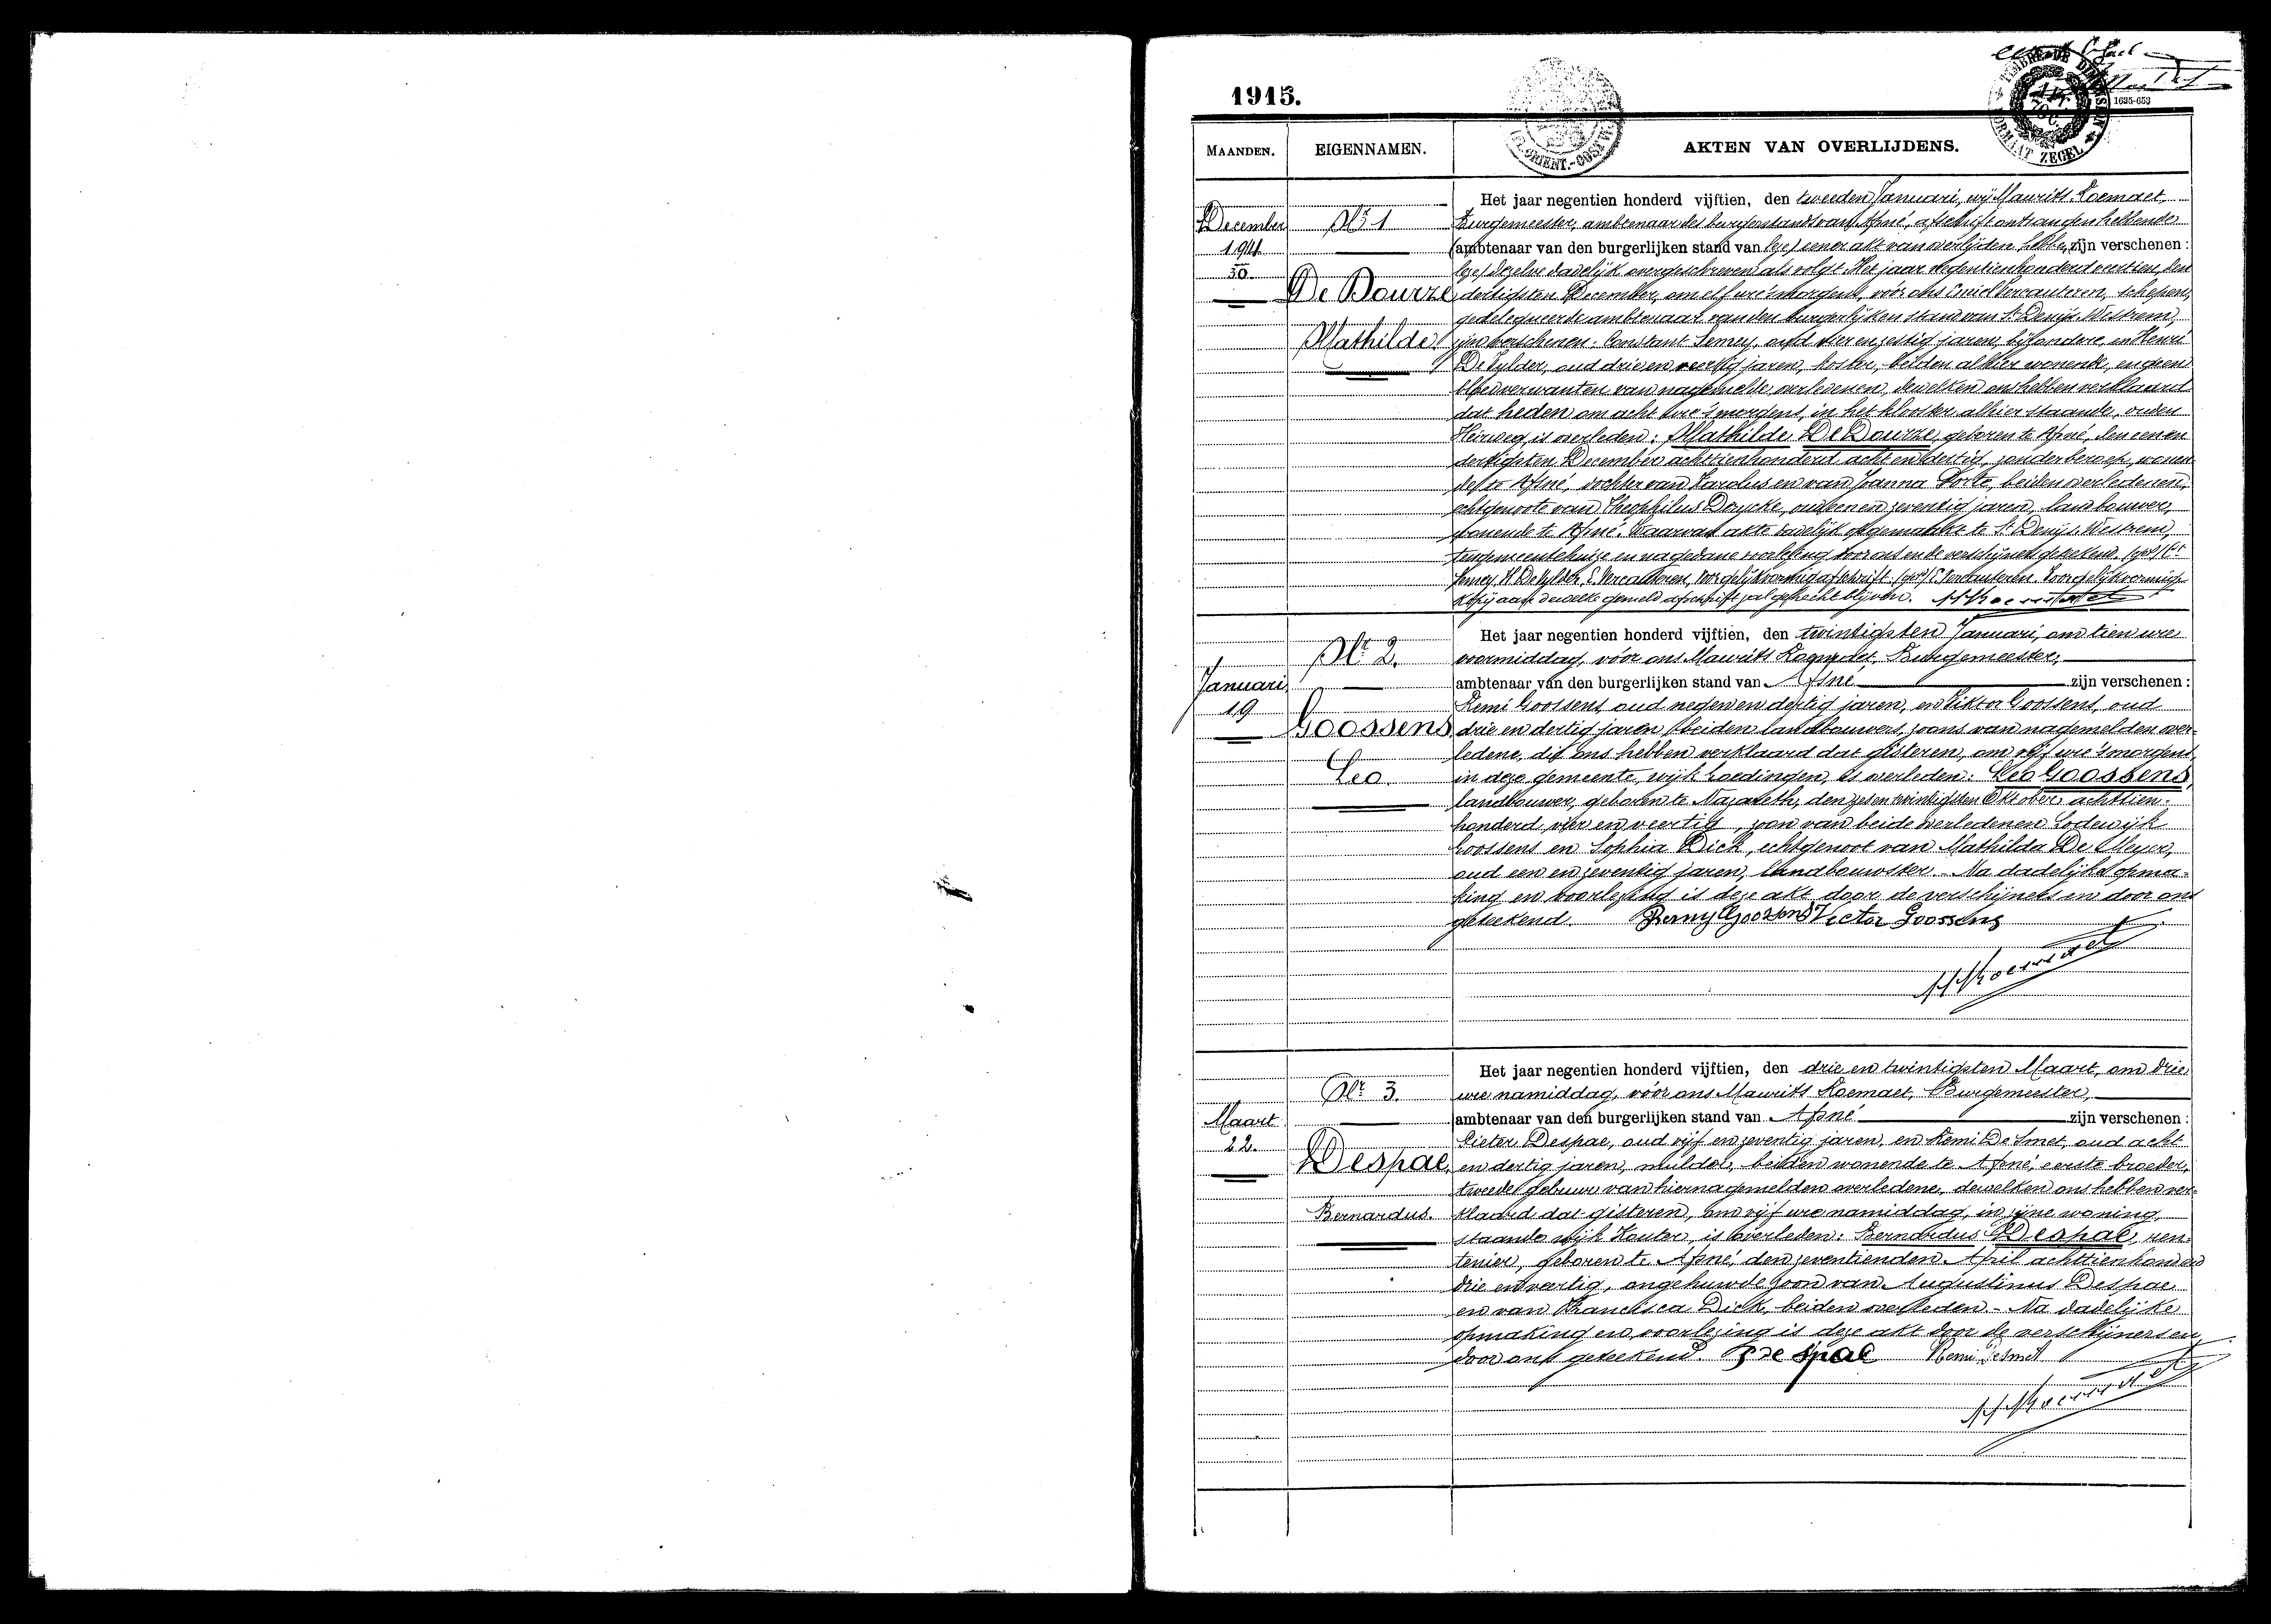 1915.
1635-653
TIMBRE DE DIMENSION
FORMAAT ZEGEL
MAANDEN.
EIGENNAMEN.
AKTEN VAN OVERLIJDENS.
December
1914
30
Nr 1
De Bourze
Mathilde
Het jaar negentien honderd vijftien, den tweeden Januari, wij Maurits Koemaet,
Burgemeester, ambtenaar des burgerstands van Afsné, afschrift ontvangen hebbende
(ambtenaar van den burgerlijken stand van (gez) eener akt van overlijden hebben zijn verschenen :
dezelve dadelijk overgeschreven als volgt. Het jaar negentienhonderd veertien, den
dertigsten December, om elf ure 's morgens, vóór ons Emiel Vercauteren, schepen,
gedelegueerde ambtenaar van den burgerlijken stand van St Denijs-Westrem,
zijn verschenen: Constant Semey, oud vier en zestig jaren, bijzondere, en Henri
De Vylder, oud drie en veertig jaren, koster, beiden alhier wonende, en geen
bloedverwanten van nagemelde overledenen, dewelken ons hebben verklaard
dat heden om acht ure 's morgens, in het klooster alhier staande, ouden
Heirweg, is overleden: Mathilde De Bourze, geboren te Afsné, den een en
dertigsten December achttienhonderd acht en dertig, zonder beroep, wonen-
de te Afsné, dochter van Karolus en van Joanna Dorte, beiden overledenen,
echtgenoote van Theophilus Duycke, oud een en zeventig jaren, landbouwer,
wonende te Afsné. Waarvan akte dadelijk opgemaakt te St Denijs-Westrem,
ten gemeentehuize en na gedane voorlezing door ons en de verschijners geteekend. (get) Ct
Semey, H. De Vylder, E. Vercauteren, Voor gelijkvormig afschrift (get) E. Vercauteren. Voor gelijkvormige
kopij aan dewelke gemeld afschrift zal gehecht blijven. M Koemaet
Januari
19
Nr 2.
Goossens
Leo.
Het jaar negentien honderd vijftien, den twintigsten Januari, om tien ure
voormiddag, vóór ons Maurits Koemaet, Burgemeester,
ambtenaar van den burgerlijken stand van Afsné zijn verschenen :
Remi Goossens, oud negen en dertig jaren, en Viktor Goossens, oud
drie en dertig jaren, beiden landbouwers, zoons van nagemelden over-
ledene, die ons hebben verklaard dat gisteren, om vijf ure 's morgens,
in deze gemeente, wijk Goedingen, is overleden: Leo Goossens,
landbouwer, geboren te Nazareth, den zes en twintigsten Oktober achttien-
honderd vier en veertig, zoon van beide overledenen Lodewijk
Goossens en Sophia Dick, echtgenoot van Mathilda De Meyer,
oud een en zeventig jaren, landbouwster. - Na dadelijke opma-
king en voorlezing is deze akt door de verschijners en door ons
geteekend. Remy Goossens Victor Goossens
M Koemaet
Maart
22.
Nr 3.
Despae,
Bernardus.
Het jaar negentien honderd vijftien, den drie en twintigsten Maart, om drie
ure namiddag, vóór ons Maurits Koemaet, Burgemeester,
ambtenaar van den burgerlijken stand van Afsné zijn verschenen :
Pieter Despae, oud vijf en zeventig jaren, en Remi De Smet, oud acht
en dertig jaren, mulder, beiden wonende te Afsné, eerste broeder,
tweede gebuur van hiernagemelden overledene, dewelken ons hebben ver-
klaard dat gisteren, om vijf ure namiddag, in zijne woning,
staande wijk Kouter, is overleden: Bernardus Despae, ren-
tenier, geboren te Afsné, den zeventienden April achttienhonderd
drie en veertig, ongehuwde zoon van Augustinus Despae
en van Francisca Dick, beiden overleden. - Na dadelijke
opmaking en voorlezing is deze akt door de verschijners en
door ons geteekend. P De Spae Remi Desmet
M Koemaet